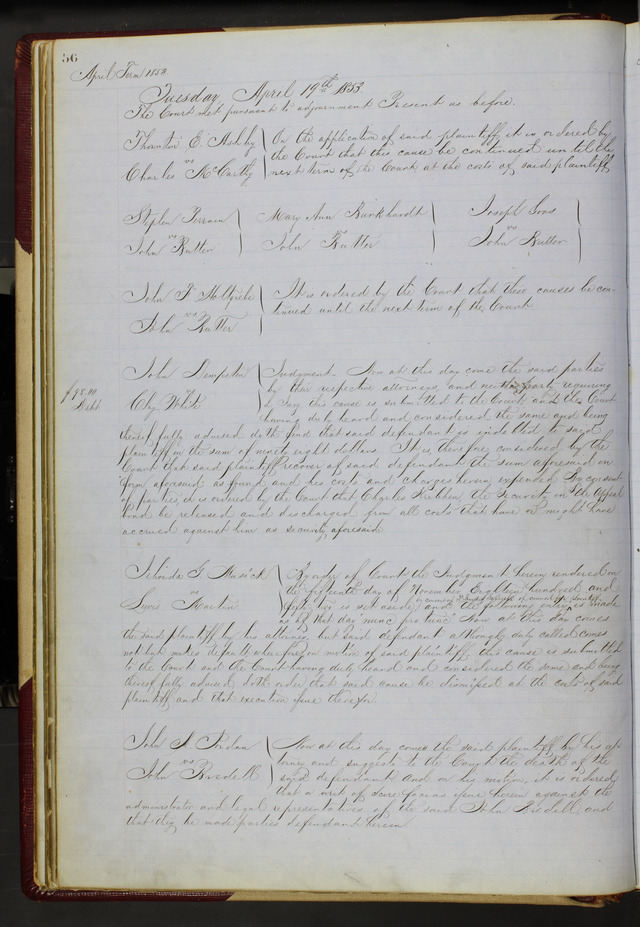 56
April Term 1853
Tuesday April 19th 1853
The Court met pursuant to adjournment Present as before.
Thornton E. Ashby
vs
Charles McCarthy
On the application of said plaintiff it is ordered by
the Court that this cause be continued until the
next term of the Court at the costs of said plaintiff
Stephen
vs
John Rutter
Mary Ann Burkhardt
vs
John Rutter
Joseph
vs
John Rutter
John F
vs
John Rutter
It is ordered by the Court that these causes be con-
tinued until the next term of the Court
$98.00
Debt
John Dempster
vs
White
Judgment. Now at this day come the said parties
by their respective attorneys and neither party requiring
a jury this cause is submitted to the Court, and the Court
having duly heard and considered the same and being
thereof fully advised doth find that said defendant is indebted to said
plaintiff in the sum of ninety eight dollars. It is, therefore considered by the
Court that said plaintiff recover of said defendant the sum aforesaid in
form aforesaid as found and his costs and charges herein expended. By consent
of parties it is ordered by the Court that Charles the Security in the appeal
bond be released and discharged from all costs that have or might have
accrued against him as security aforesaid
G
vs
Lewis Martin
By order of Court the Judgment herein rendered on
the fifteenth day of November Eighteen hundred and
fifty two is set aside and the following entry is made
as of that day nunc pro tunc Now at this day comes
the said plaintiff by his attorney but said defendant although duly called comes
not but makes default wherefore on motion of said plaintiff this cause is submitted
to the Court and the Court having duly heard and considered the same and being
thereof fully advised doth order that said cause be dismissed at the costs of said
plaintiff and that execution issue therefor
John
vs
John
Now at this day comes the said plaintiff by his at-
torney and suggests to the Court the death of the
said defendant and on his motion, it is ordered
that a writ of scire facias issue herein against the
administrator and legal representatives of the said John and
that they be made parties defendant herein